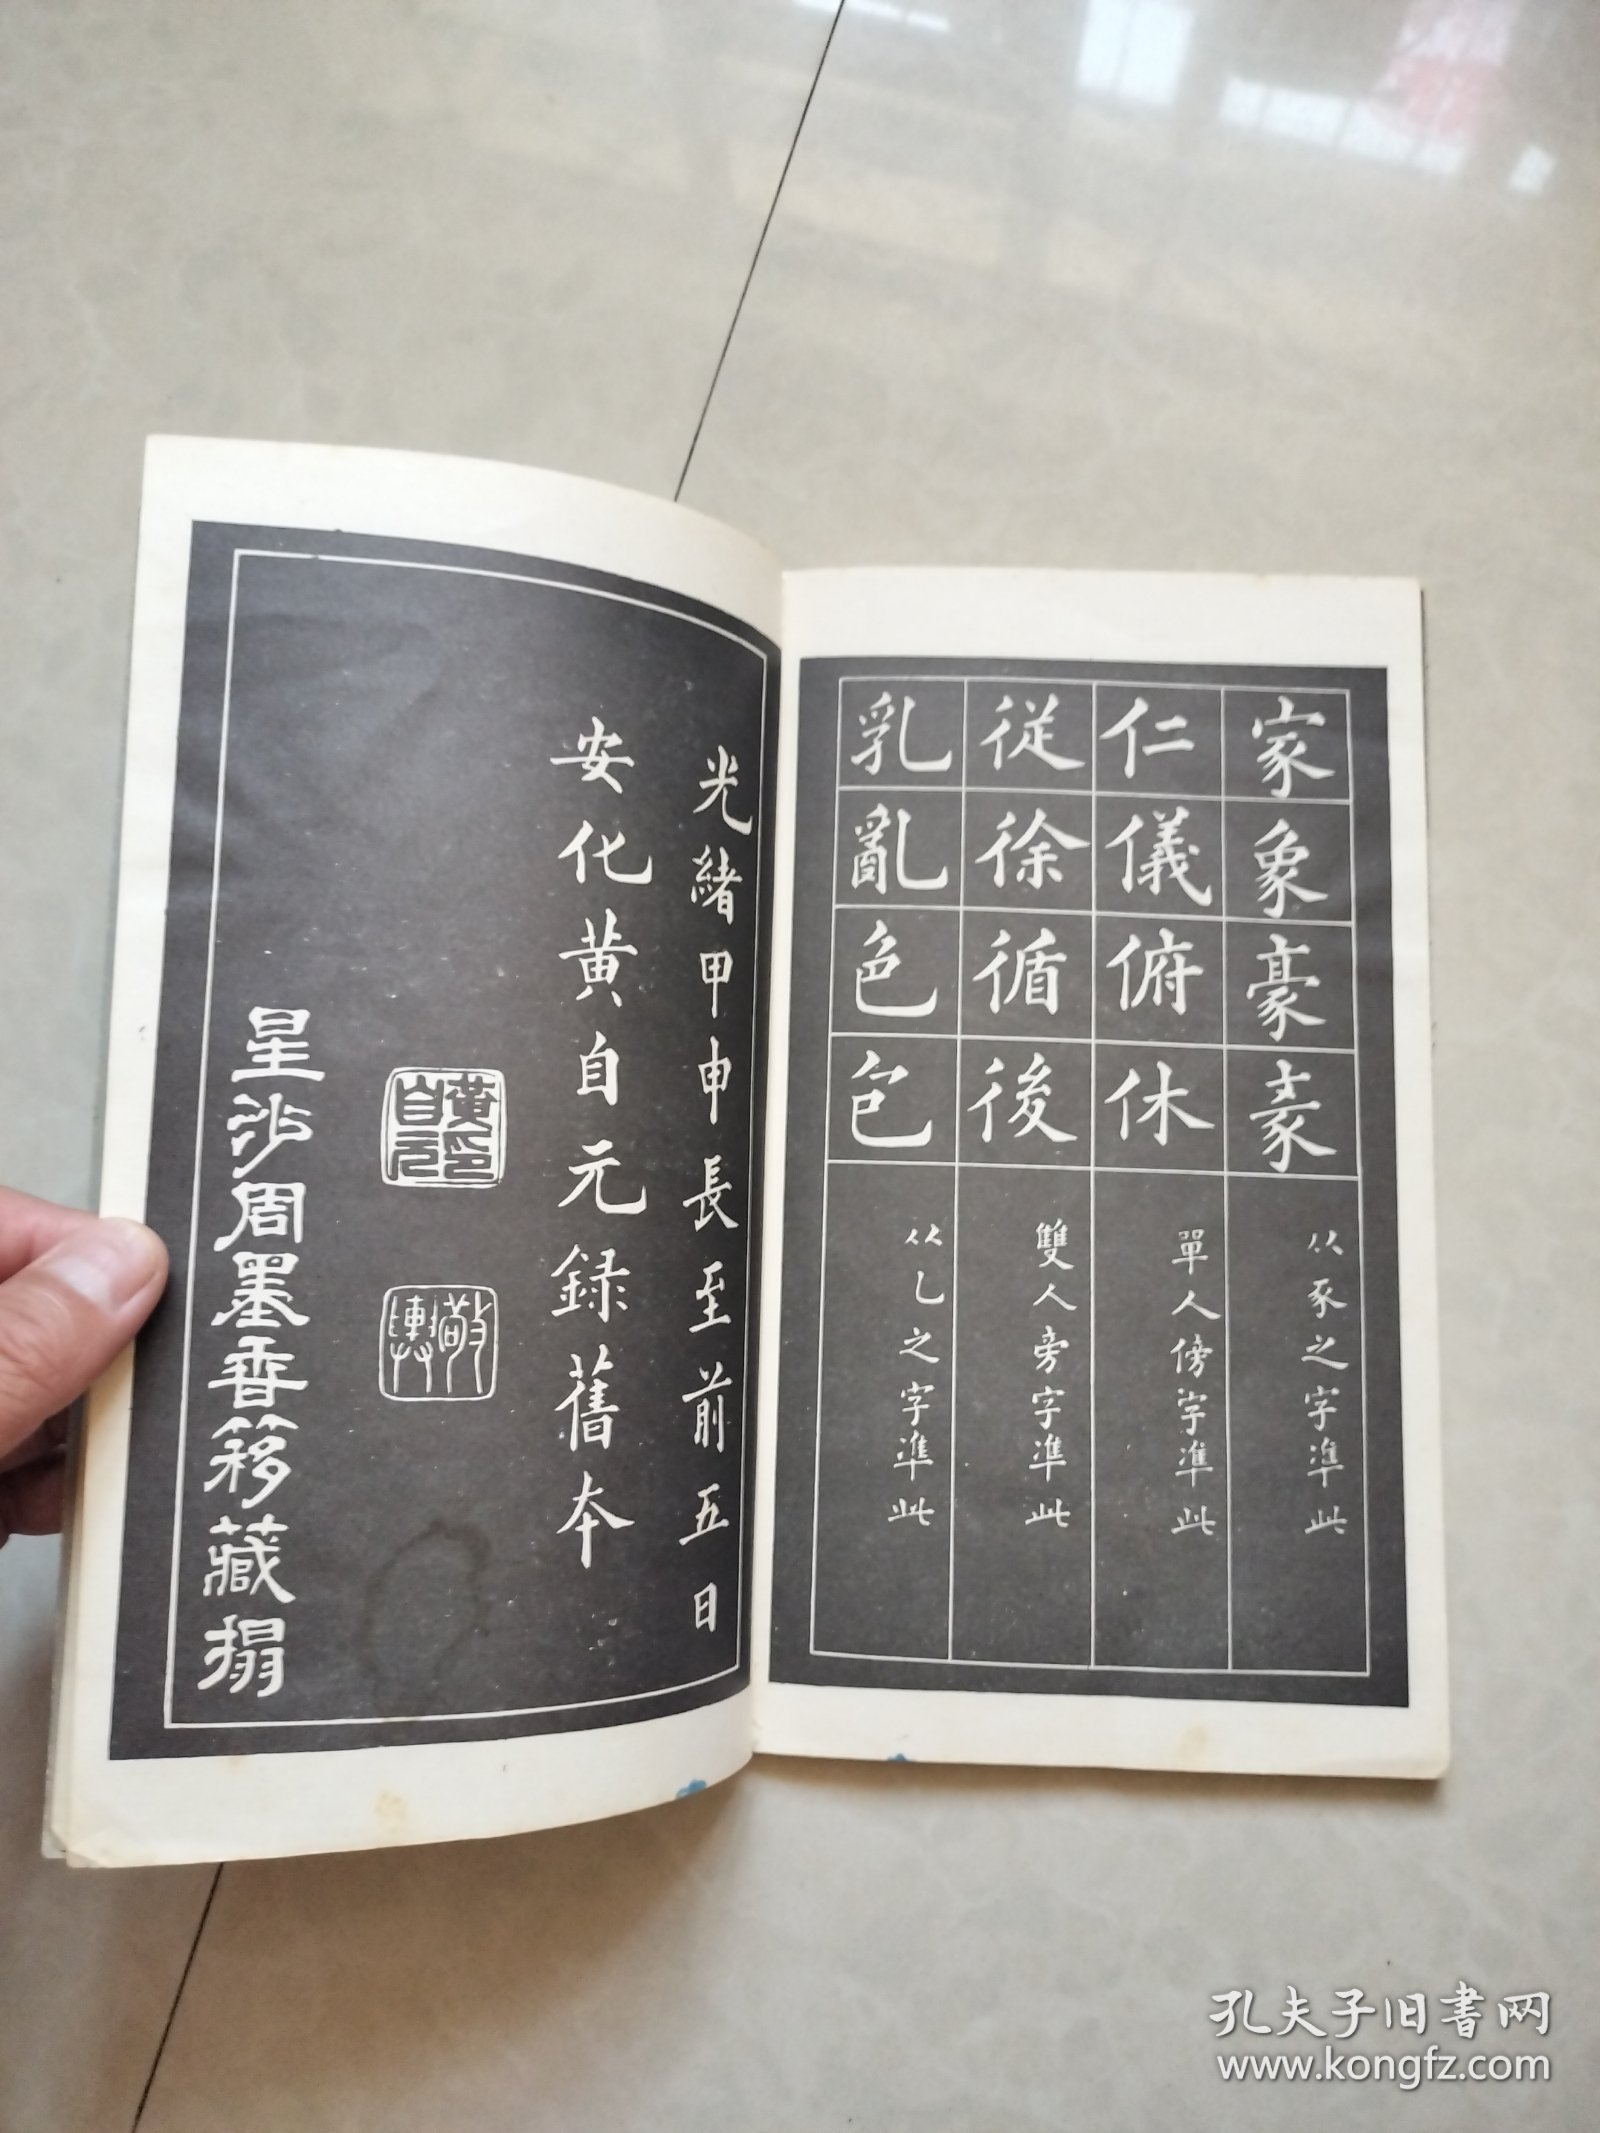 家象豪豪
从豕之字準此
仁儀俯休
單人傍字準此
従徐循後
雙人旁字準此
乳亂色包
从乚之字準此
光緒甲申長至前五日
安化黄自元録舊本
黄自元印
敬輿
星沙周墨香簃藏搨
孔夫子旧书网
www.kongfz.com